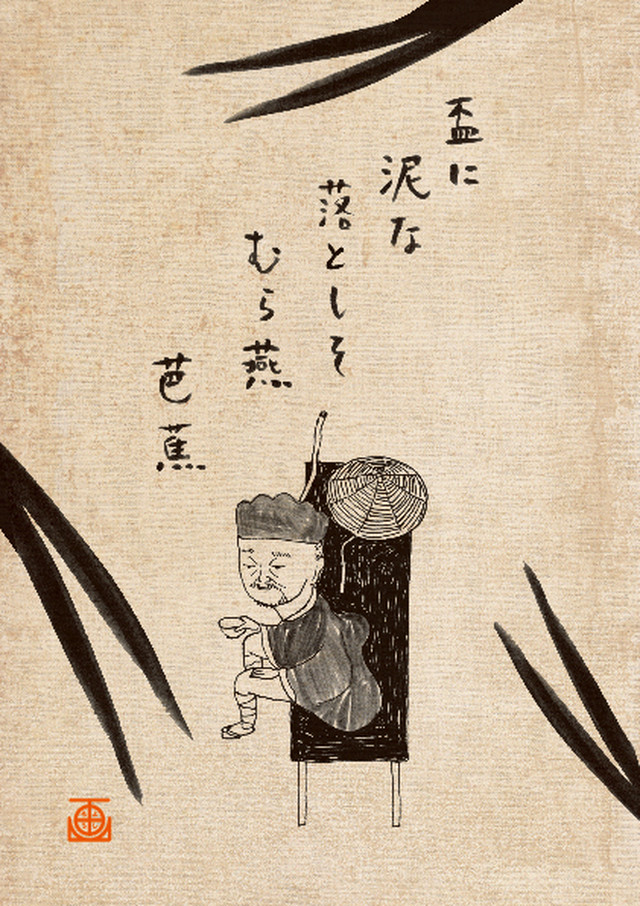 盃に
泥な
落としそ
むら燕
芭蕉
画